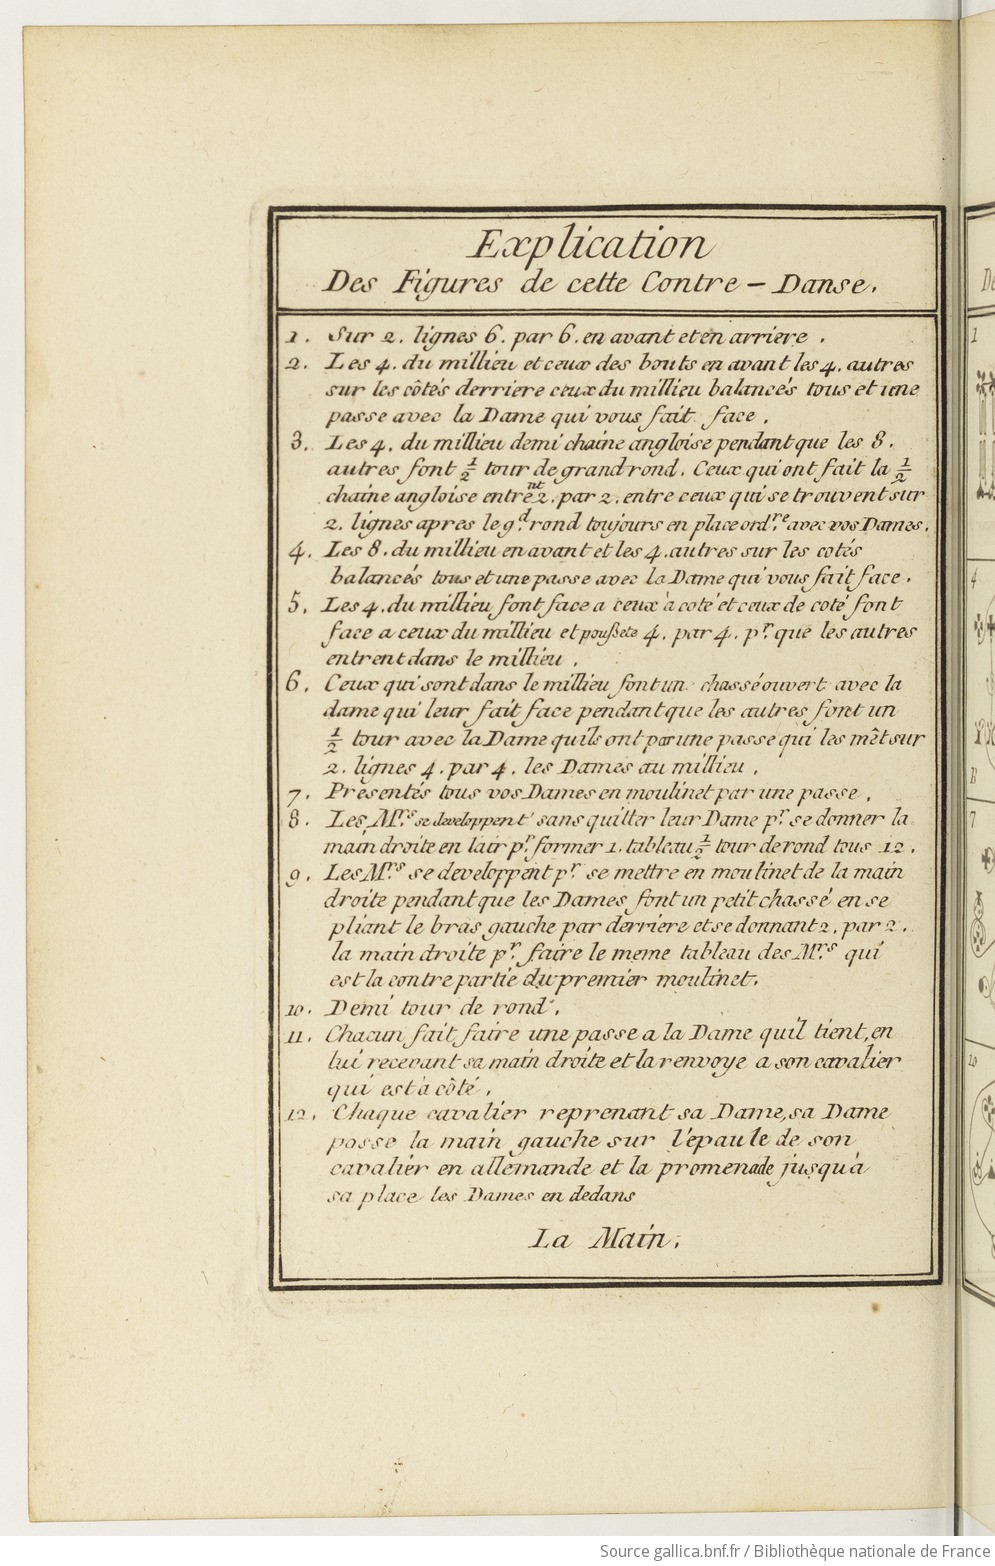 Explication
Des Figures de cette Contre-Danse.
1. Sur 2. lignes 6. par 6. en avant et en arriere.
2. Les 4. du millieu et ceux des bouts en avant les 4. autres
sur les côtés derriere ceux du millieu balancés tous et une
passe avec la Dame qui vous fait face.
3. Les 4. du millieu demi chaine angloise pendant que les 8.
autres font ½ tour de grand rond. Ceux qui ont fait la ½
chaine angloise entrent 2. par 2. entre ceux qui se trouvent sur
2. lignes apres le gd. rond toujours en place ordre. avec vos Dames.
4. Les 8. du millieu en avant et les 4. autres sur les cotés
balancés tous et une passe avec la Dame qui vous fait face.
5. Les 4. du millieu font face a ceux à coté et ceux de coté font
face a ceux du millieu et poussete 4. par 4. pr. que les autres
entrent dans le millieu.
6. Ceux qui sont dans le millieu font un chassé ouvert avec la
dame qui leur fait face pendant que les autres font un
½ tour avec la Dame qu'ils ont par une passe qui les mêt sur
2. lignes 4. par 4. les Dames au millieu.
7. Présentés tous vos Dames en moulinet par une passe.
8. Les Mrs. se developpent sans quitter leur Dame pr. se donner la
main droite en lair pr. former 1. tableau ½ tour de rond tous 12.
9. Les Mrs. se developpent pr. se mettre en moulinet de la main
droite pendant que les Dames font un petit chassé en se
pliant le bras gauche par derriere et se donnant 2. par 2.
la main droite pr. faire le meme tableau des Mrs. qui
est la contre partie du premier moulinet.
10. Demi tour de rond.
11. Chacun fait faire une passe a la Dame qu'il tient, en
lui recevant sa main droite et la renvoye a son cavalier
qui est à côté.
12. Chaque cavalier reprenant sa Dame, sa Dame
passe la main gauche sur l'epaule de son
cavalier en allemande et la promenade jusqu'à
sa place les Dames en dedans
La Main.
1
4
7
10
Source gallica.bnf.fr / Bibliothèque nationale de France